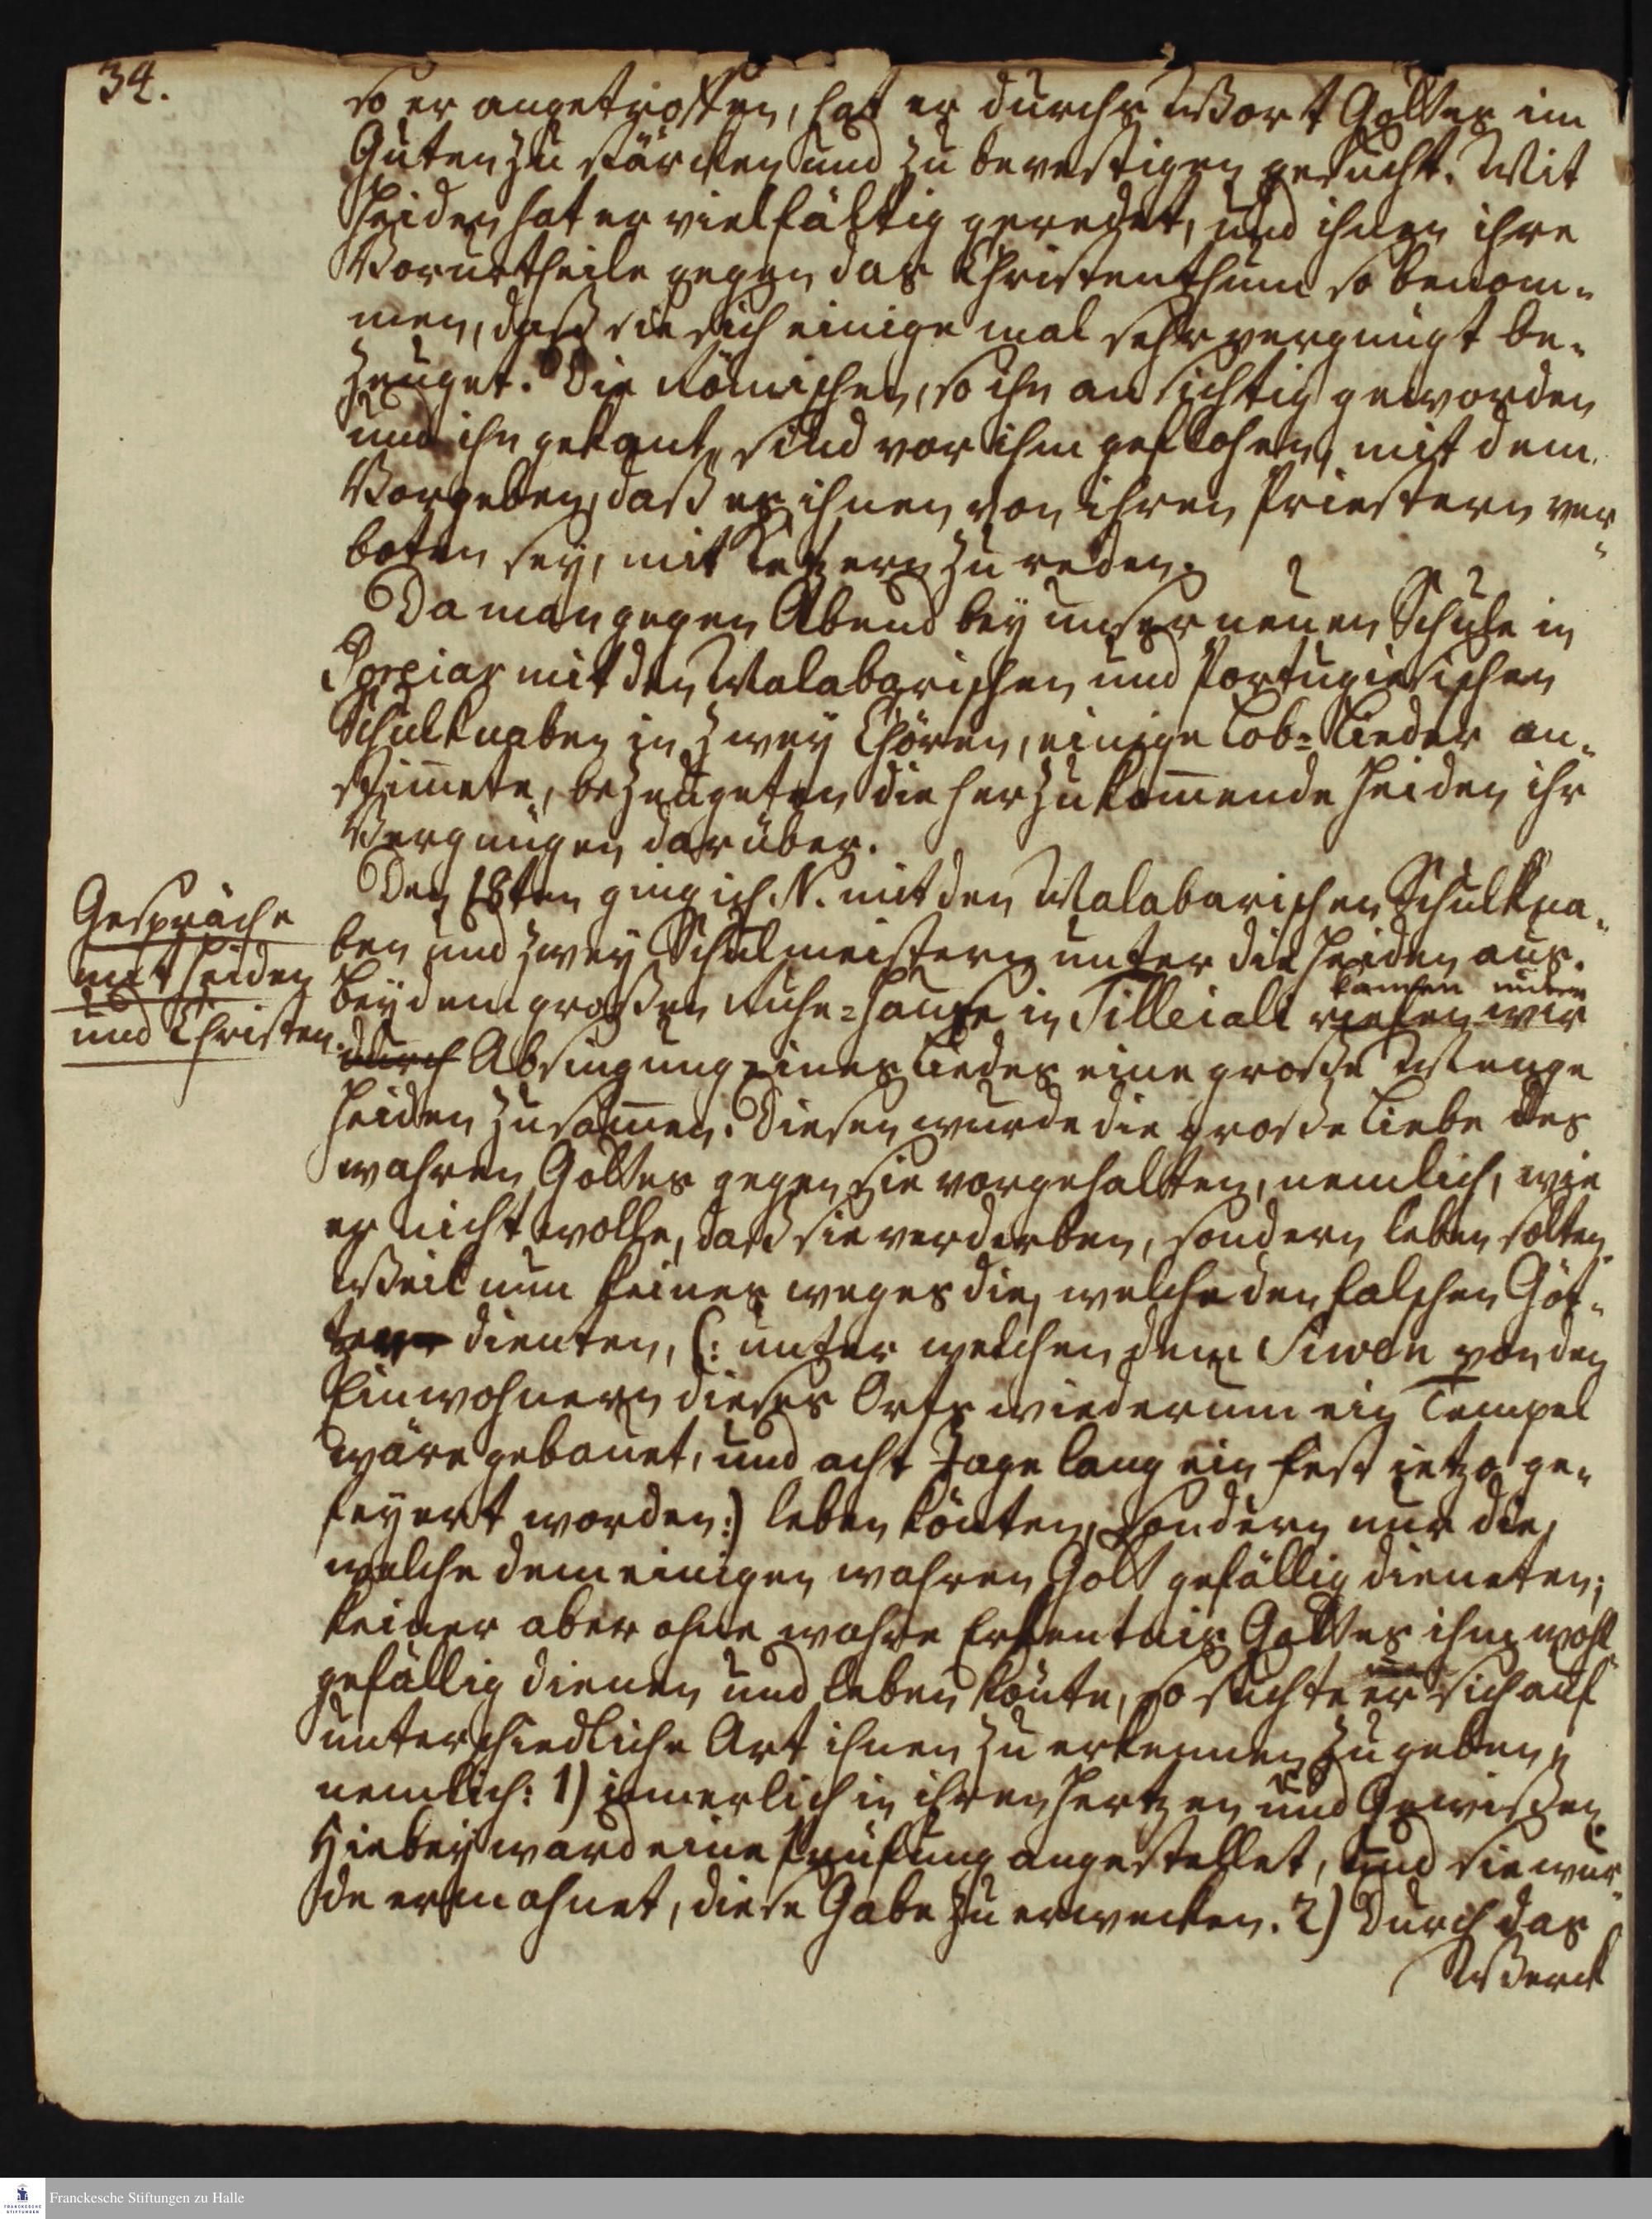 34.
so er angetroffen, hat er durchs Wort Gottes im
Guten zu stärcken und zu bevestigen gesucht. Mit
Heiden hat er vielfältig geredet, und ihnen ihre
Vorurtheile gegen das Christenthum so benom-
men, daß sie sich einige mal sehr vergnügt be-
zeuget. Die Römischen, so ihn ansichtig geworden
und ihn gekant, sind vor ihm geflohen, mit dem
Vorgeben, daß es ihnen von ihren Priestern ver-
boten sey, mit Ketzern zu reden.
Da man gegen Abend bey unser neuen Schule in
Poreiar mit den Malabarischen und Portugiesischen
Schulknaben in zwey Chören, einige Lob-Lieder an-
stimete, bezeugeten die herzukommende Heiden ihr
Vergnügen darüber.
Gespräche
mit Heiden
und Christen.
Den 18ten ging ich. N. mit den Malabarischen Schulkna-
ben und zwey Schulmeistern unter die Heiden aus.
kamen unter
Bey dem großen Ruhe-Hause in Tilleiali riefen wir
durch Absingung eines Liedes eine große Menge
Heiden zusammen. Diesen wurde die große Liebe des
wahren Gottes gegen sie vorgehalten, nemlich, wie
er nicht wolle, daß sie verderben, sondern leben solten.
Weil nun keines weges die, welche den falschen Göt-
tern dienten, (: unter welchen dem Siwen von den
Einwohnern dieses Orts wiederum ein Tempel
wäre gebauet, und acht Tage lang ein Fest ietzo ge-
feyert worden:) leben könten, sondern nur die,
welche dem einigen wahren Gott gefällig dieneten;
keiner aber ohne wahre Erkentnis Gottes ihm wohl
gefällig dienen und leben könte, so suchte er sich auf
unterschiedliche Art ihnen zu erkennen zu geben,
nemlich: 1) innerlich in ihren Hertzen und Gewißen.
Hiebey ward eine Prüfung angestellet, und sie wur-
de ermahnet, diese Gabe zu erwecken. 2) Durch das
Werck
Franckesche Stiftungen zu Halle